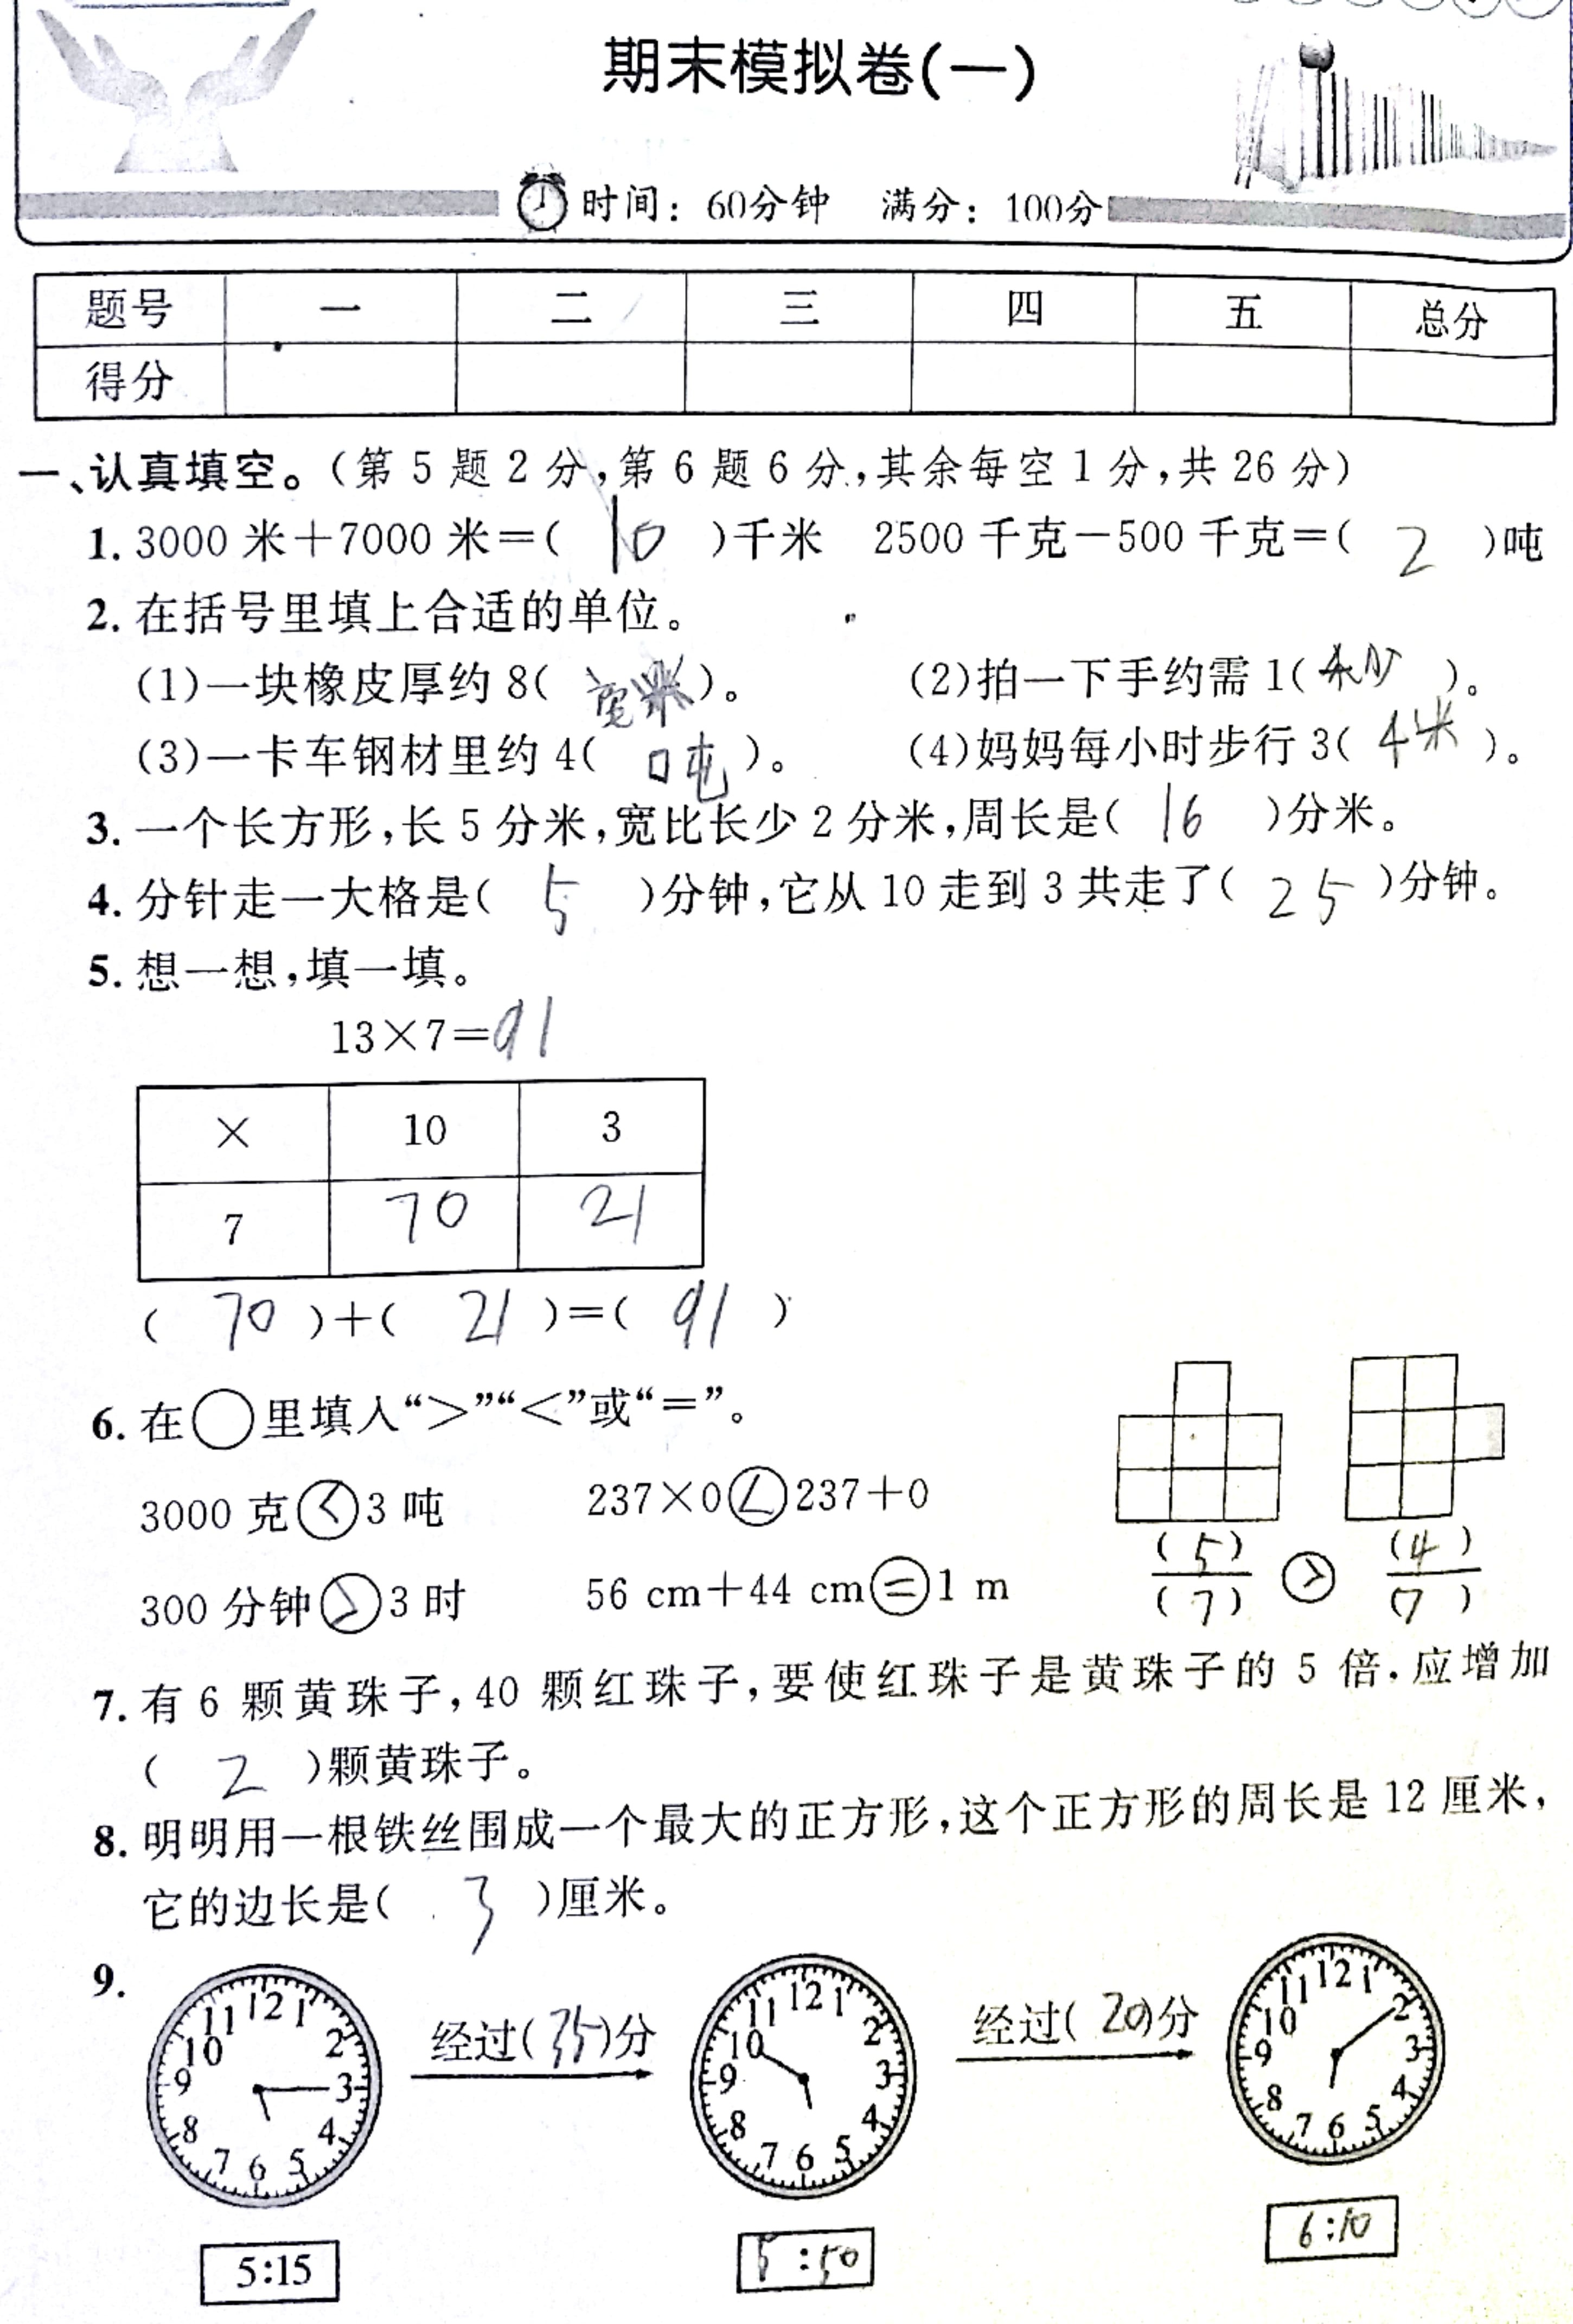 期末模拟卷(一)
时间：60分钟 满分：100分
题号 一 二 三 四 五 总分
得分
一、认真填空。(第5题2分,第6题6分,其余每空1分,共26分)
1. 3000米+7000米=( 10 )千米 2500千克-500千克=( 2 )吨
2. 在括号里填上合适的单位。
(1)一块橡皮厚约8( 毫米 )。 (2)拍一下手约需1( )。
(3)一卡车钢材里约4( 吨 )。 (4)妈妈每小时步行3( 千米 )。
3. 一个长方形,长5分米,宽比长少2分米,周长是( 16 )分米。
4. 分针走一大格是( 5 )分钟,它从10走到3共走了( 25 )分钟。
5. 想一想,填一填。
13×7=91
× 10 3
7 70 21
( 70 )+( 21 )=( 91 )
6. 在○里填入“>”“<”或“=”。
3000克<3吨 237×0<237+0
(5)/(7) > (4)/(7)
300分钟>3时 56 cm+44 cm=1 m
7. 有6颗黄珠子,40颗红珠子,要使红珠子是黄珠子的5倍.应增加
( 2 )颗黄珠子。
8. 明明用一根铁丝围成一个最大的正方形,这个正方形的周长是12厘米,
它的边长是( 3 )厘米。
9.
11 12 1 2 3 4 5 6 7 8 9 10
经过(35)分
11 12 1 2 3 4 5 6 7 8 9 10
经过(20)分
11 12 1 2 3 4 5 6 7 8 9 10
5:15 5:50 6:10